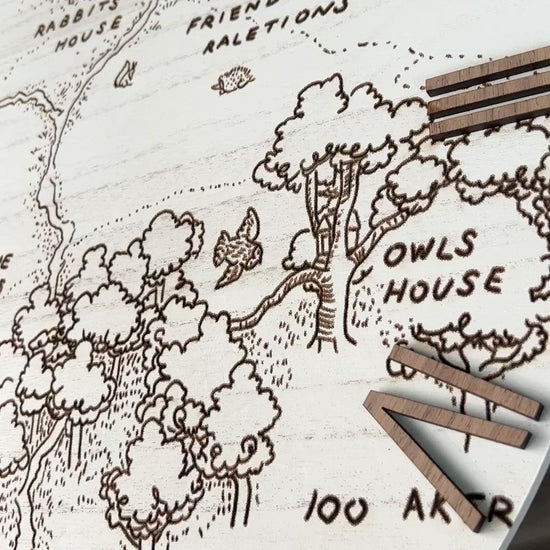 RABBITS
HOUSE
FRIEND
RALETIONS
OWLS
HOUSE
100 AKER